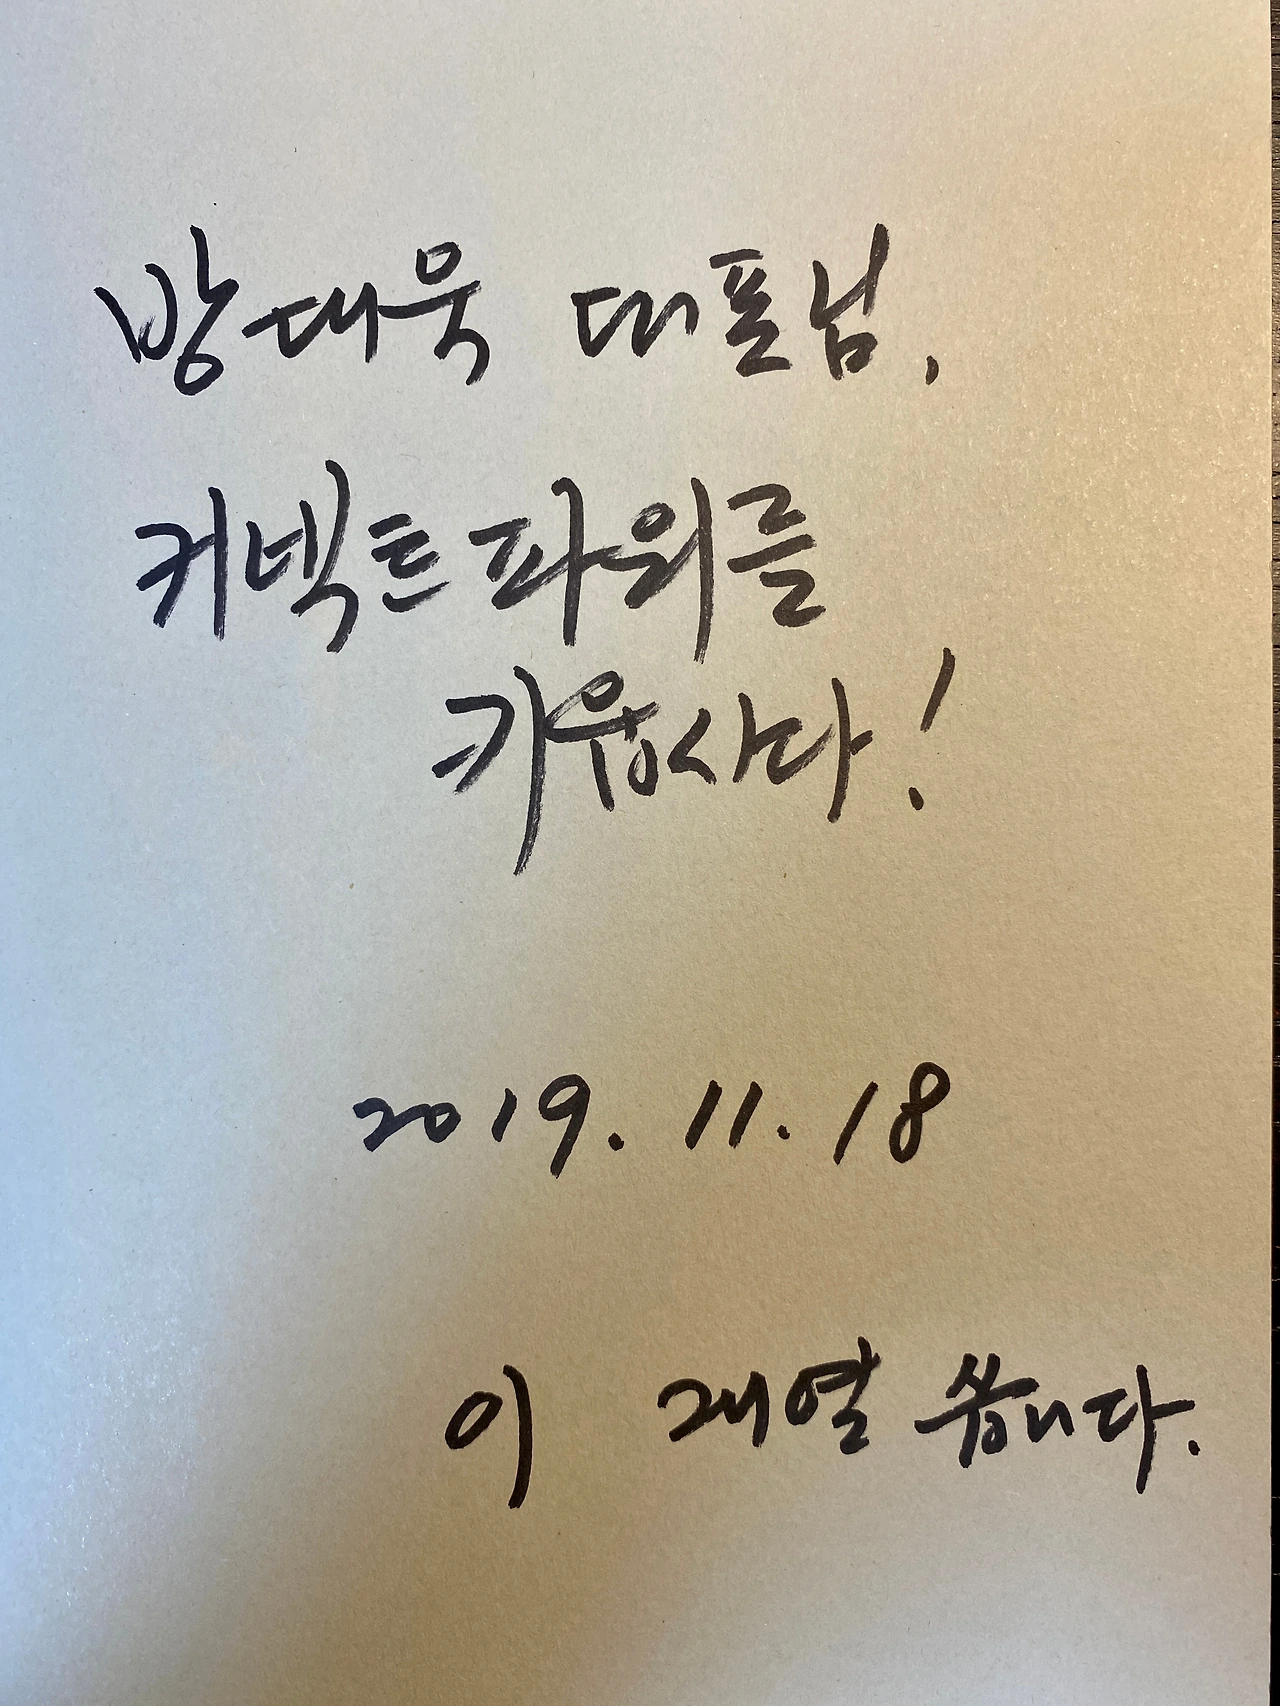 방대욱 대표님,
커넥트파워를
키웁시다!
2019. 11. 18
이 재열 씁니다.